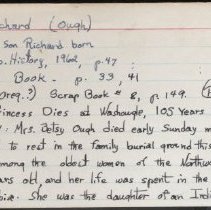 chard (Ough)
son Richard born
o. History, 1962, p. 47
Book. p. 33, 41
Oreg.?) Scrap Book # 8, p. 149.
rincess Dies at Washougle, 105 Years
Mrs. Betsy Ough died early Sunday m
to rest in the family burial ground this
mong the oldest women of the Northwe
ars old, and her life was spent in the
bia. She was the daughter of an Ind